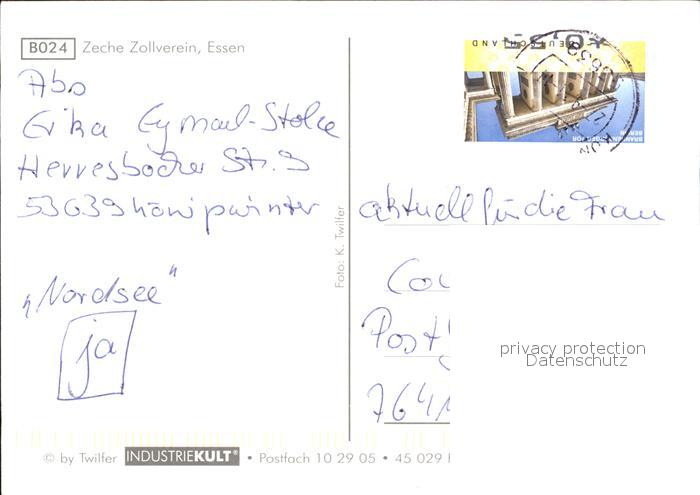 B024 Zeche Zollverein, Essen
Abo
Erika Eymael-Stolce
Herresbacher Str. 9
53639 Königswinter
"Nordsee"
ja
Foto: K. Twilfer
DEUTSCHLAND
BRANDENBURGER TOR
BERLIN
aktuell für die Frau
Post
7641
privacy protection
Datenschutz
© by Twilfer INDUSTRIEKULT® • Postfach 10 29 05 • 45 029